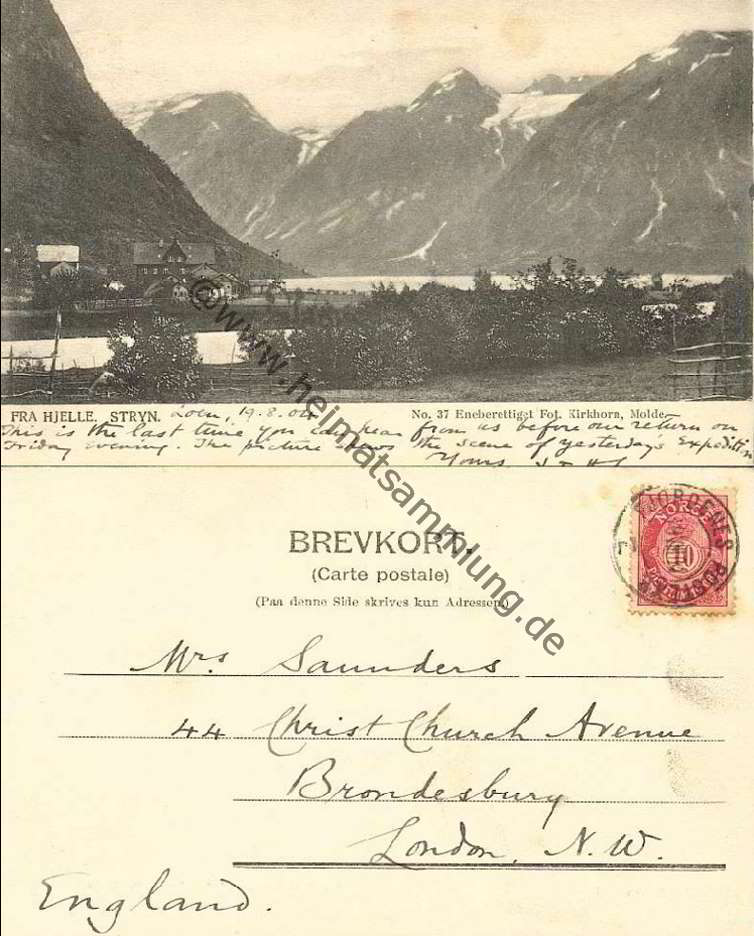 FRA HJELLE. STRYN. Loen, 19.8.04 No. 37 Eneberettiget Fot. Kirkhorn, Molde.
This is the last time you can hear from us before our return on
Friday evening. The picture shows the scene of yesterday's Expedition
Yours
@www.heimatsammlung.de
BREVKORT.
(Carte postale)
(Paa denne Side skrives kun Adressen)
NORGE
10
FJORDENES
Mrs Saunders
44 Christ Church Avenue
Brondesbury
London, N.W.
England.